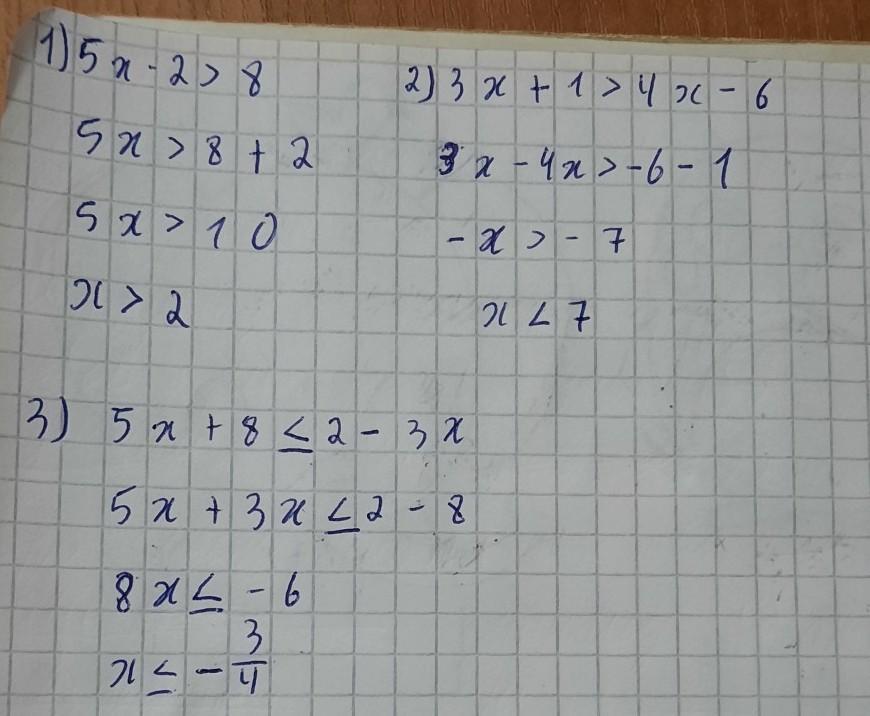 1) 5x - 2 > 8
5x > 8 + 2
5x > 10
x > 2
2) 3x + 1 > 4x - 6
3x - 4x > -6 - 1
-x > -7
x < 7
3) 5x + 8 ≤ 2 - 3x
5x + 3x ≤ 2 - 8
8x ≤ -6
x ≤ -3/4